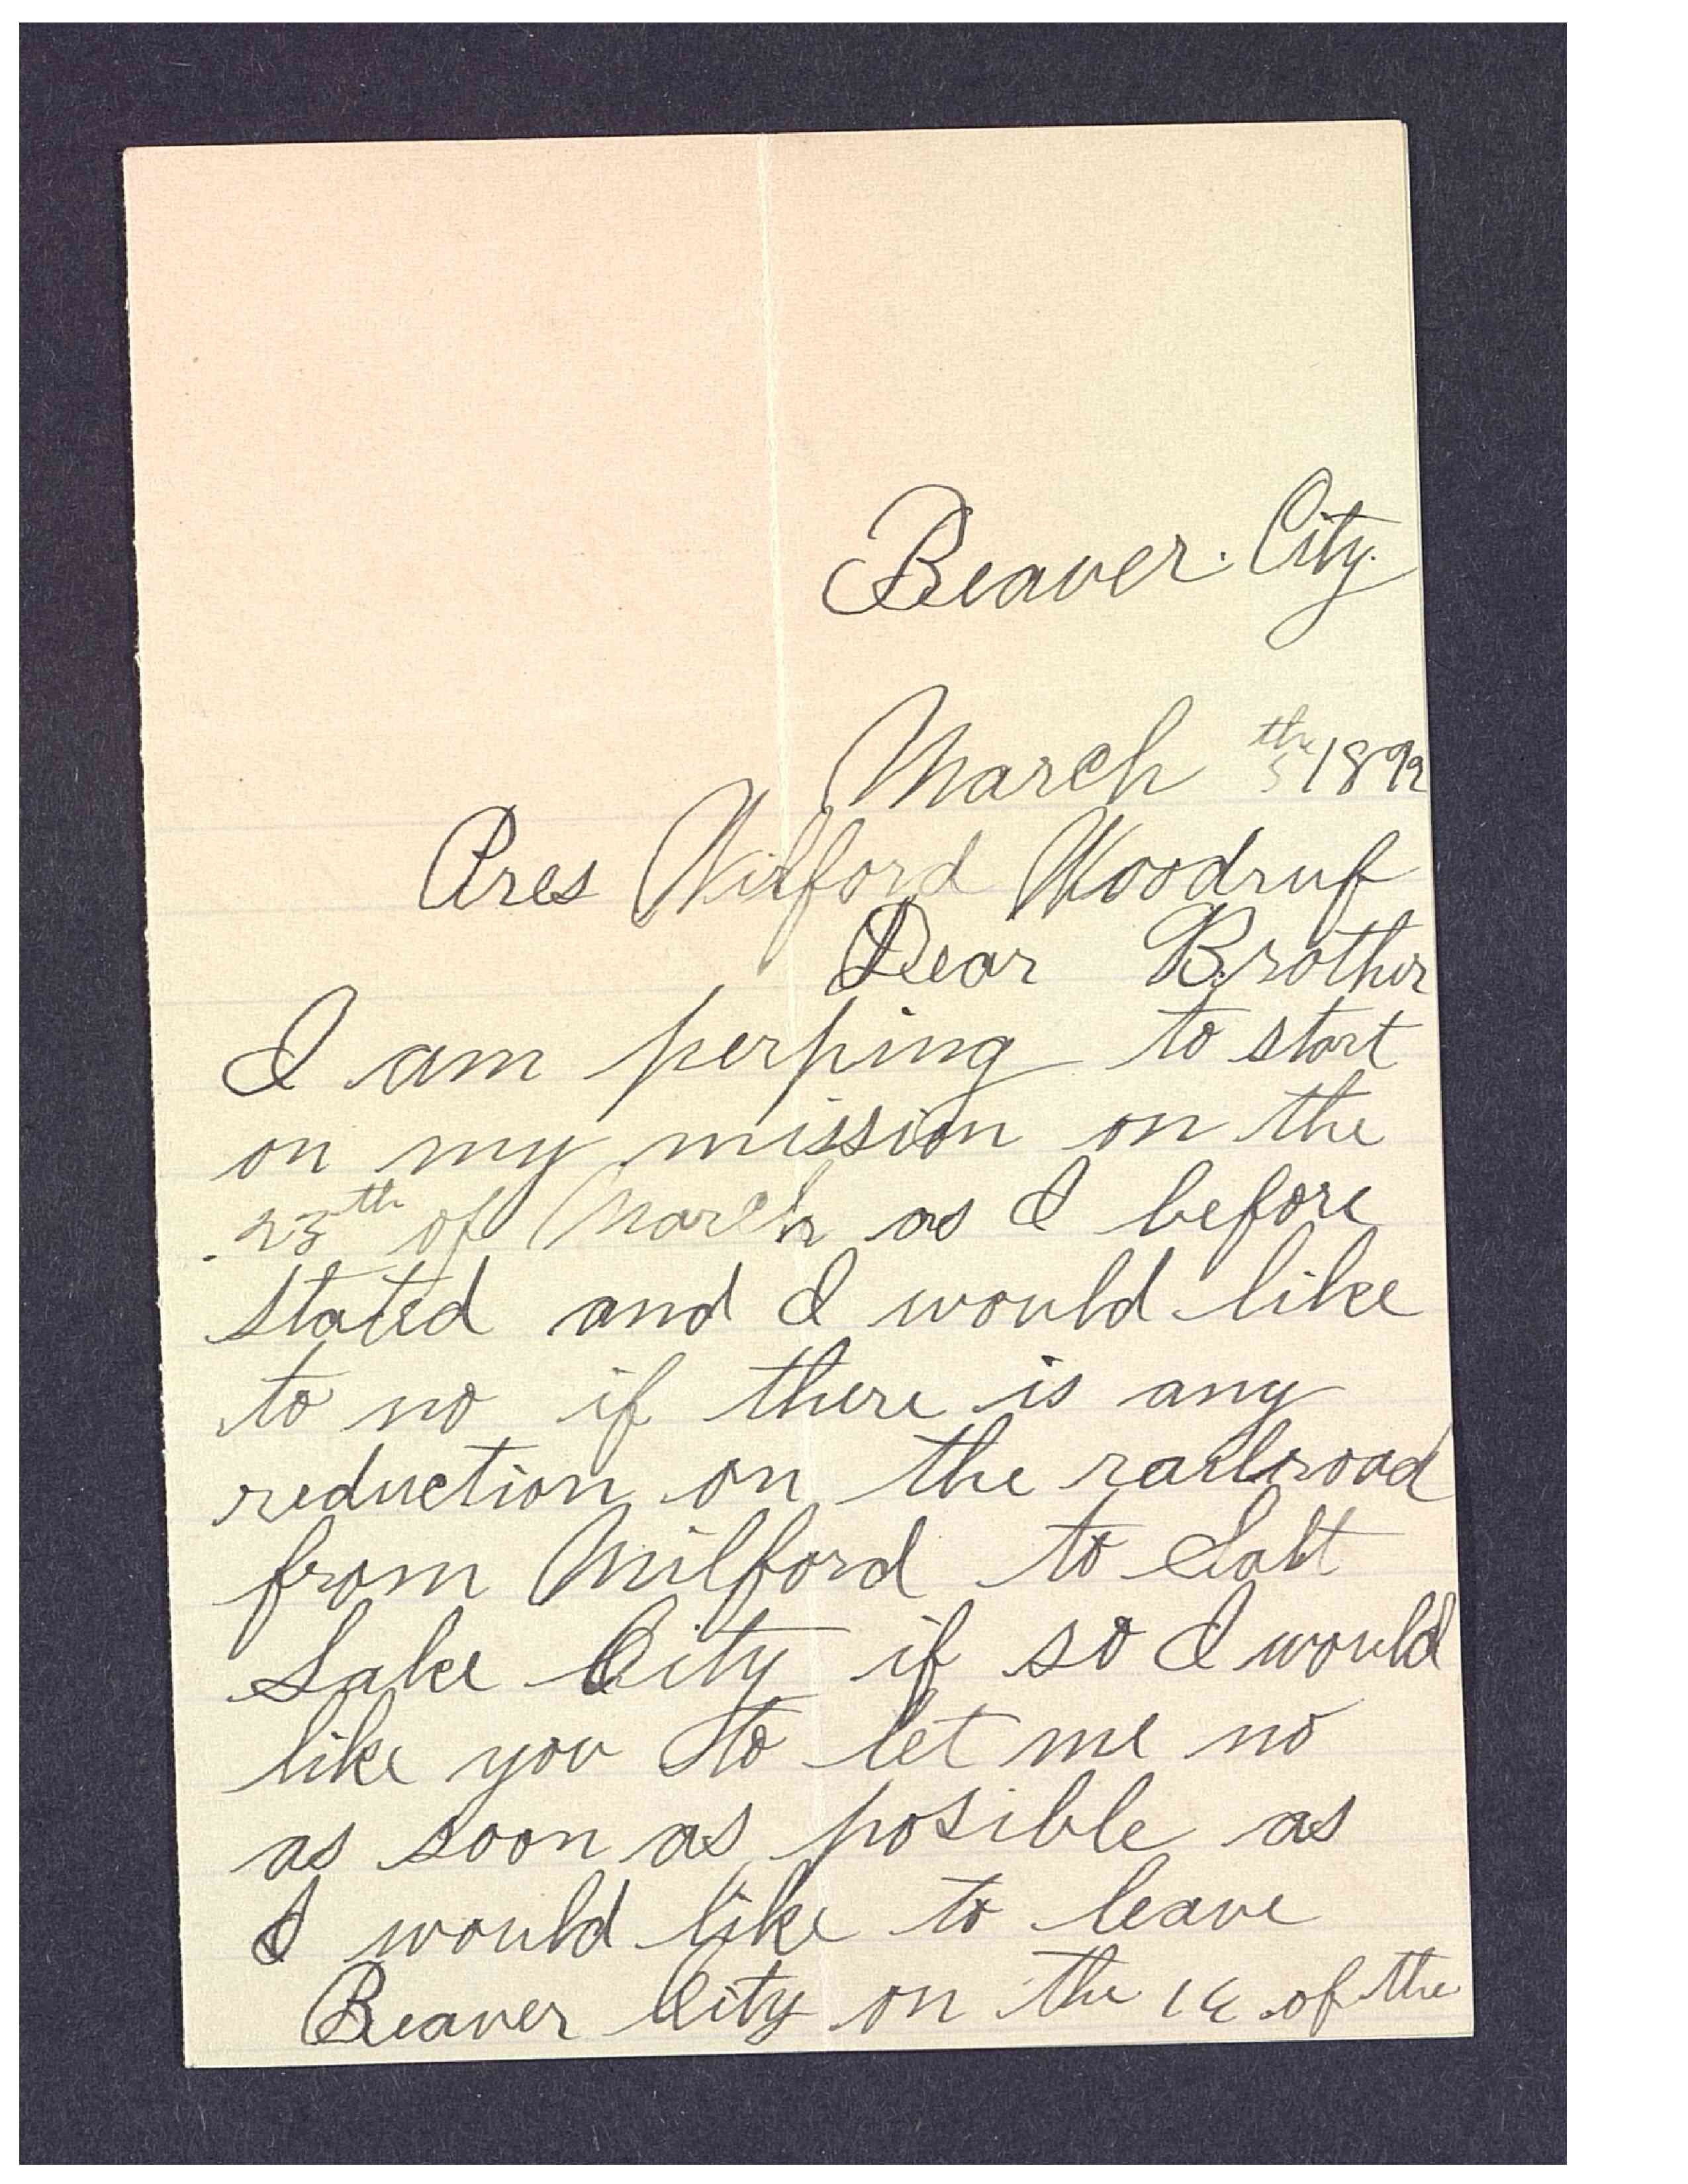 Beaver. City.
March 5th 1892
Pres Wilford Woodruf
Dear Brother
I am perping to start
on my mission on the
23th of March as I before
stated and I would like
to no if there is any
reduction on the railroad
from Milford to Salt
Lake City if so I would
like you to let me no
as soon as posible as
I would like to leave
Beaver City on the of the